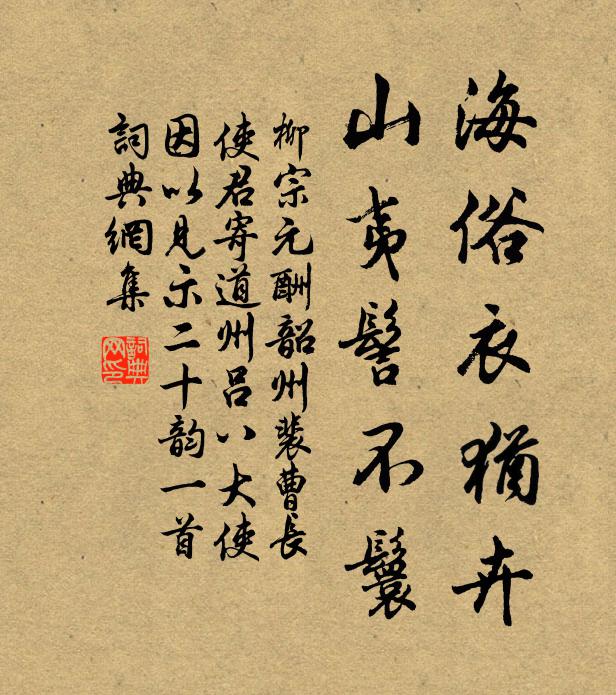 海俗衣犹卉
山夷髻不鬟
柳宗元酬韶州裴曹长
使君寄道州吕八大使
因以见示二十韵一首
詞典網集
詞典網印